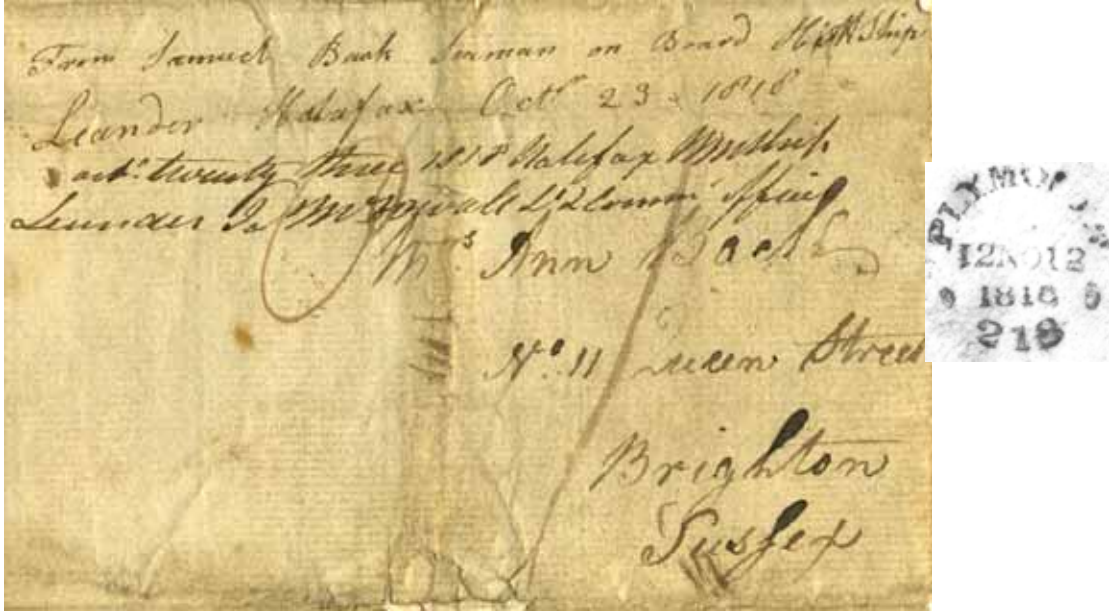 From Samuel Back Seaman on Board His M Ship
Leander Halafax Octr 23d 1818
octr. twenty three 1818 Halifax HM Ship
Leander Js McDowall Lt & Comm Officer
Mrs Ann Back
No. 11 Queen Street
Brighton
Sussex
PLYMOUTH
12NO12
1818
218